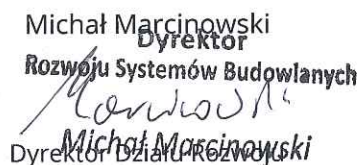 Michał Marcinowski
Dyrektor
Rozwoju Systemów Budowlanych
Marcinowski
Michał Marcinowski
Dyrektor Działu Rozwoju